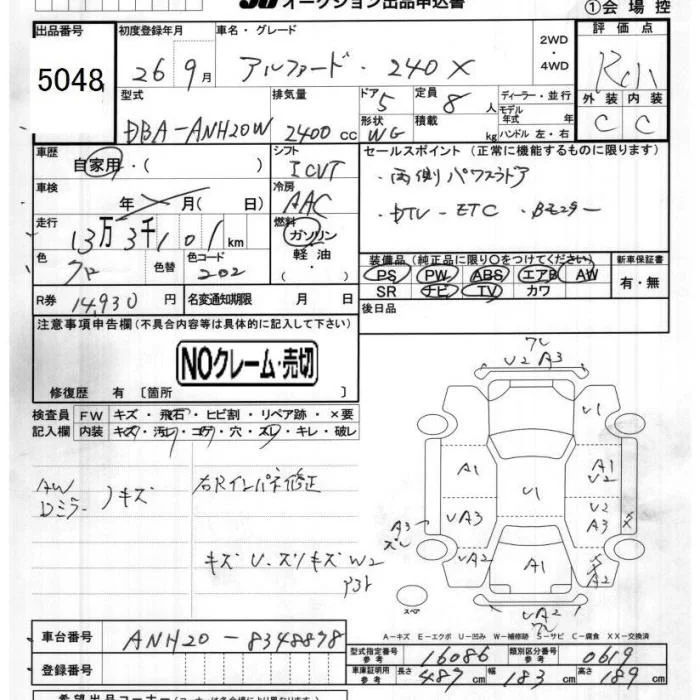 オークション出品申込書
①会場控
出品番号 初度登録年月 車名・グレード 評価点
5048 26年9月 アルファード・240X 2WD・4WD
外装 内装
C C
型式 排気量 ドア 定員 ディーラー・並行
DBA-ANH20W 2400cc 5 8人 モデル年式 年
形状 WG 積載 kg ハンドル 左・右
車歴 シフト セールスポイント (正常に機能するものに限ります)
自家用・( ) ICVT ・両側パワースドア
車検 冷房 ・DTV・ETC・Bモニター
年 月(日) AAC
走行 燃料
13万3千101km ガソリン・軽油・( )
色 色替 色コード 装備品(純正品に限り○をつけてください) 新車保証書
クロ 202 PS PW ABS エアB AW 有・無
SR ナビ TV カワ
R券 14,930円 名変通知期限 月 日 後日品
注意事項申告欄(不具合内容等は具体的に記入して下さい)
NOクレーム・売切
修復歴 有 [箇所 ]
検査員記入欄 FW キズ・飛石・ヒビ割・リペア跡・×要
内装 キズ・汚レ・コゲ・穴・スレ・キレ・破レ
AW
Dミラー キズ
右Rインパネ修正
キズ U・スリキズ W2
ワレ
U2 A3
U1
A1
A1
U2
U1
UA3
U2
A3
A3
ズレ
UA2
A1
A2
UA2
スペア
A-キズ E-エクボ U-凹み W-補修跡 S-サビ C-腐食 XX-交換済
車台番号 ANH20-8348898
型式指定番号 参考 16086 類別区分番号 参考 0619
登録番号
車庫証明用 参考 長さ 489cm 幅 183cm 高さ 189cm
希望出品コーナー